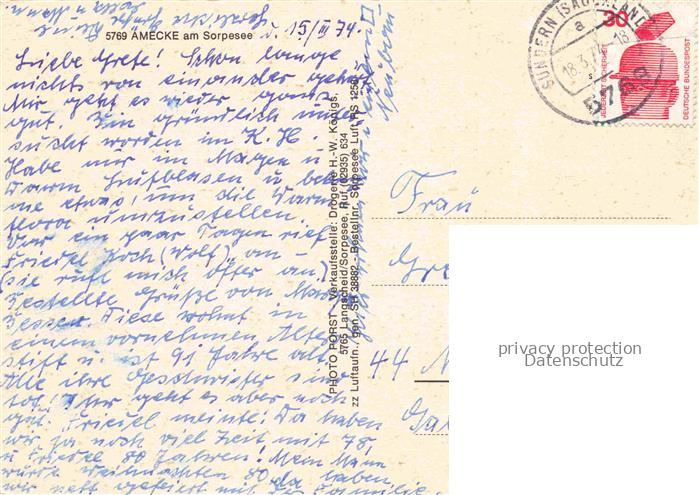 5769 AMECKE am Sorpesee
d. 15/III 74.
Liebe Grete! Schon lange
nichts von einander gehört
Mir geht es wieder ganz
gut. Bin gründlich unter
sucht worden im K.H.
Habe nur im Magen u.
Darm Luftblasen u. bek
me etwas, um die Darm
flora umzustellen.
Vor ein paar Tagen rief
Friedel Koch (Wolf) an -
(sie ruft mich öfter an.)
Bestellte Grüße von
Diese wohnt in
einem vornehmen Alters
stift u. ist 91 Jahre alt.
Alle ihre Geschwister sind
tot! Ihr geht es aber noch
gut. Friedel meinte: Da haben
wir ja noch viel Zeit mit 78,
u Friedel 80 Jahren! Mein Mann
wurde Weihnachten 80 da haben
wir nett gefeiert mit der Familie.
PHOTO PORST - Verkaufsstelle: Drogerie H.-W. Königs,
5765 Langscheid/Sorpesee, Ruf (02935) 634
zz Luftaufn., gen. SH 38882 - Bestellnr. Sorpesee Luft RS 1250
SUNDERN (SAUERLAND)
a
18.3.74.-18
5769
30
JEDERZEIT SICHERHEIT
DEUTSCHE BUNDESPOST
Frau
44
privacy protection
Datenschutz